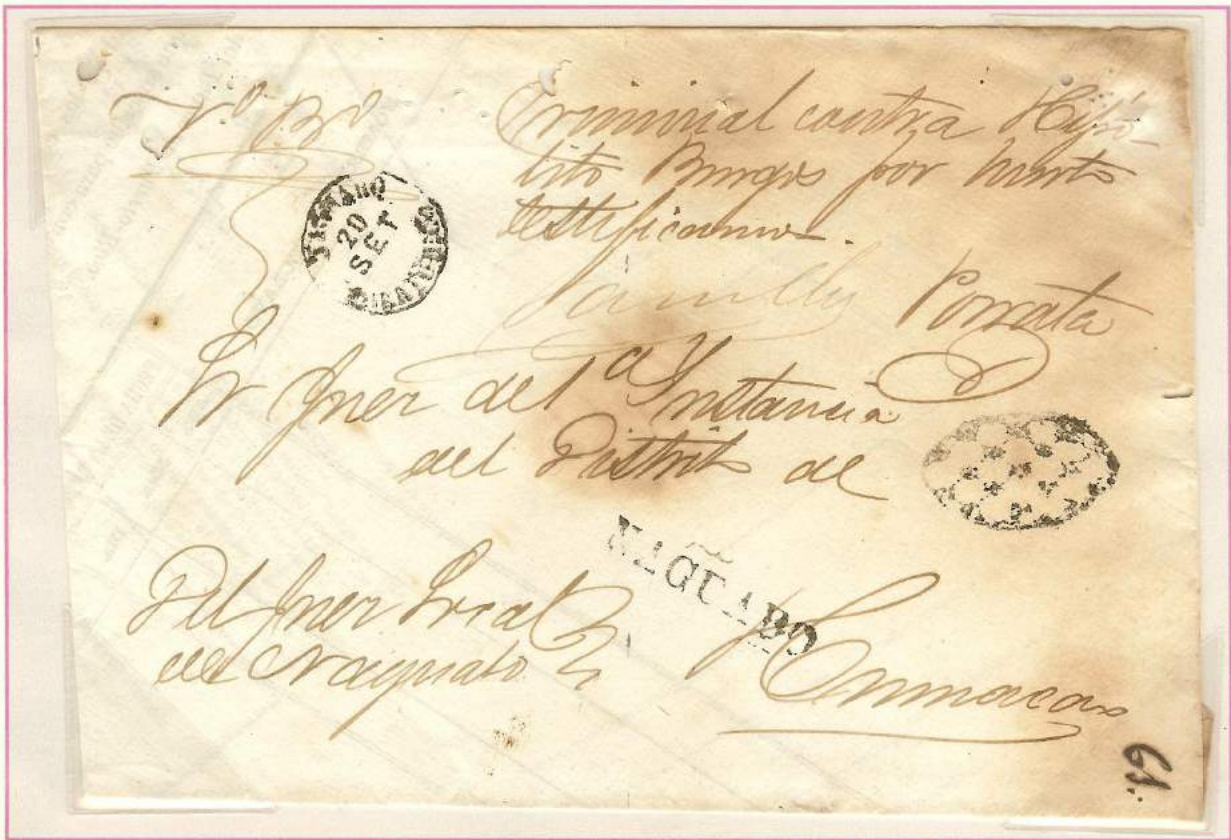 Vº Bº
Criminal contra Hipó-
lito Burgos por hurto
testificamos.
Porrata
20
SET
Sr Juez del 1ª Instancia
del Distrito de
NAGUABO
Del Juez Local
de Naguabo
Humacao
61.